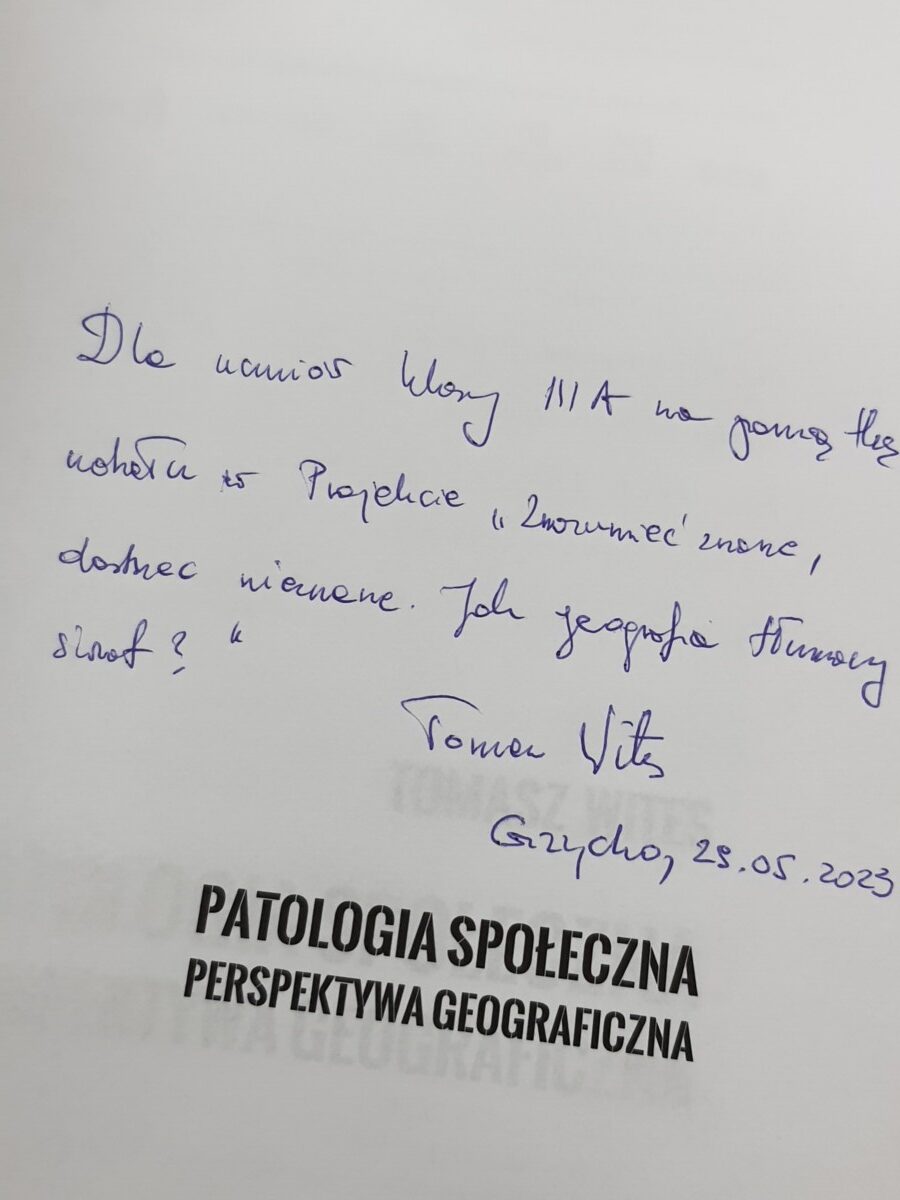 Dla uczniów klasy III A na pamiątkę
udziału w Projekcie „Zrozumieć znane,
dostrzec nieznane. Jak geografia tłumaczy
świat?“
Tomasz Wites
29.05.2023
TOMASZ WITES
PATOLOGIA SPOŁECZNA
PERSPEKTYWA GEOGRAFICZNA